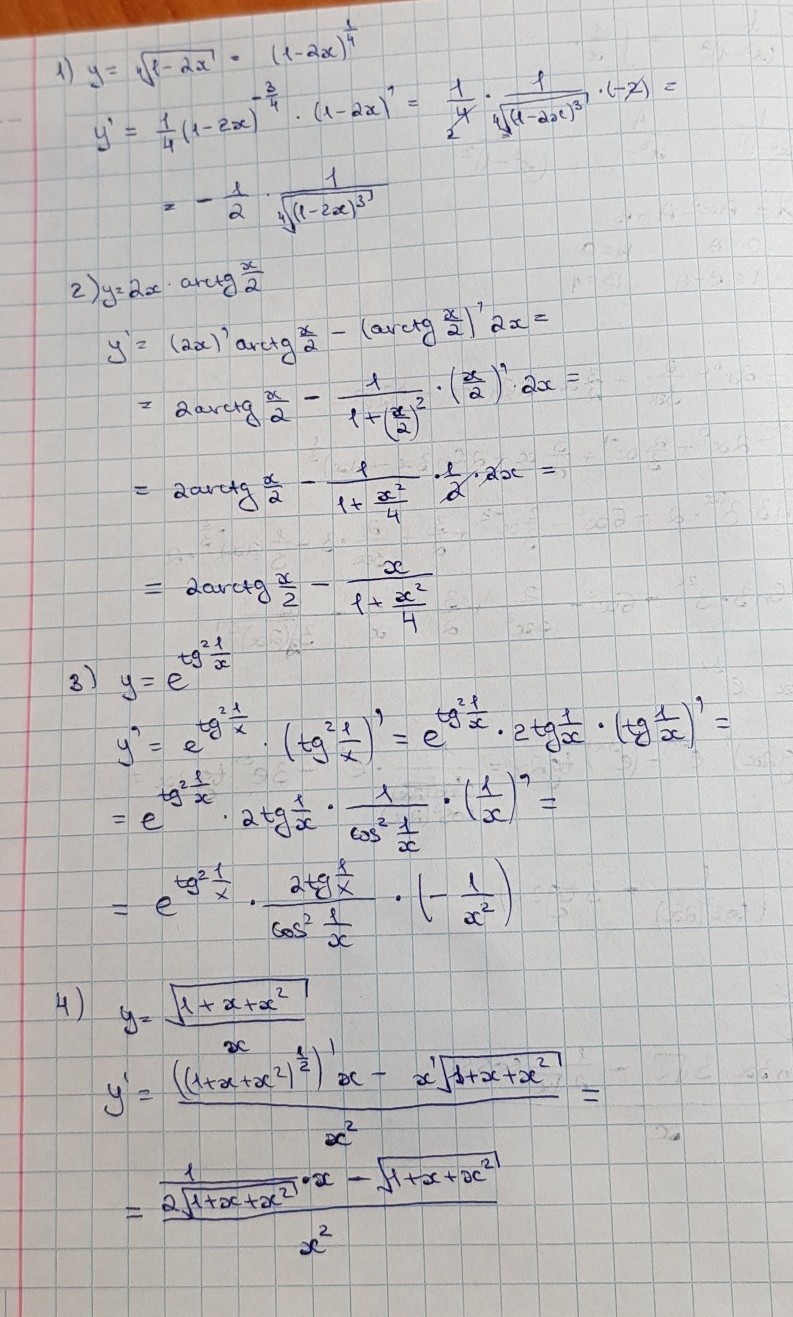 1) y = ∜(1-2x) = (1-2x)^(1/4)
y' = 1/4 (1-2x)^(-3/4) · (1-2x)' = 1/4 · 1/∜((1-2x)³) · (-2) =
2
= - 1/2 · 1/∜((1-2x)³)
2) y=2x · arctg x/2
y' = (2x)' arctg x/2 - (arctg x/2)' 2x =
= 2arctg x/2 - 1/(1+(x/2)²) · (x/2)' · 2x =
= 2arctg x/2 - 1/(1+x²/4) · 1/2 · 2x =
= 2arctg x/2 - x/(1+x²/4)
3) y = e^(tg² 1/x)
y' = e^(tg² 1/x) · (tg² 1/x)' = e^(tg² 1/x) · 2tg 1/x · (tg 1/x)' =
= e^(tg² 1/x) · 2tg 1/x · 1/(cos² 1/x) · (1/x)' =
= e^(tg² 1/x) · (2tg 1/x)/(cos² 1/x) · (- 1/x²)
4) y = √(1+x+x²)/x
y' = (((1+x+x²)^(1/2))' x - x'√(1+x+x²))/x² =
= (1/(2√(1+x+x²)) · x - √(1+x+x²))/x²